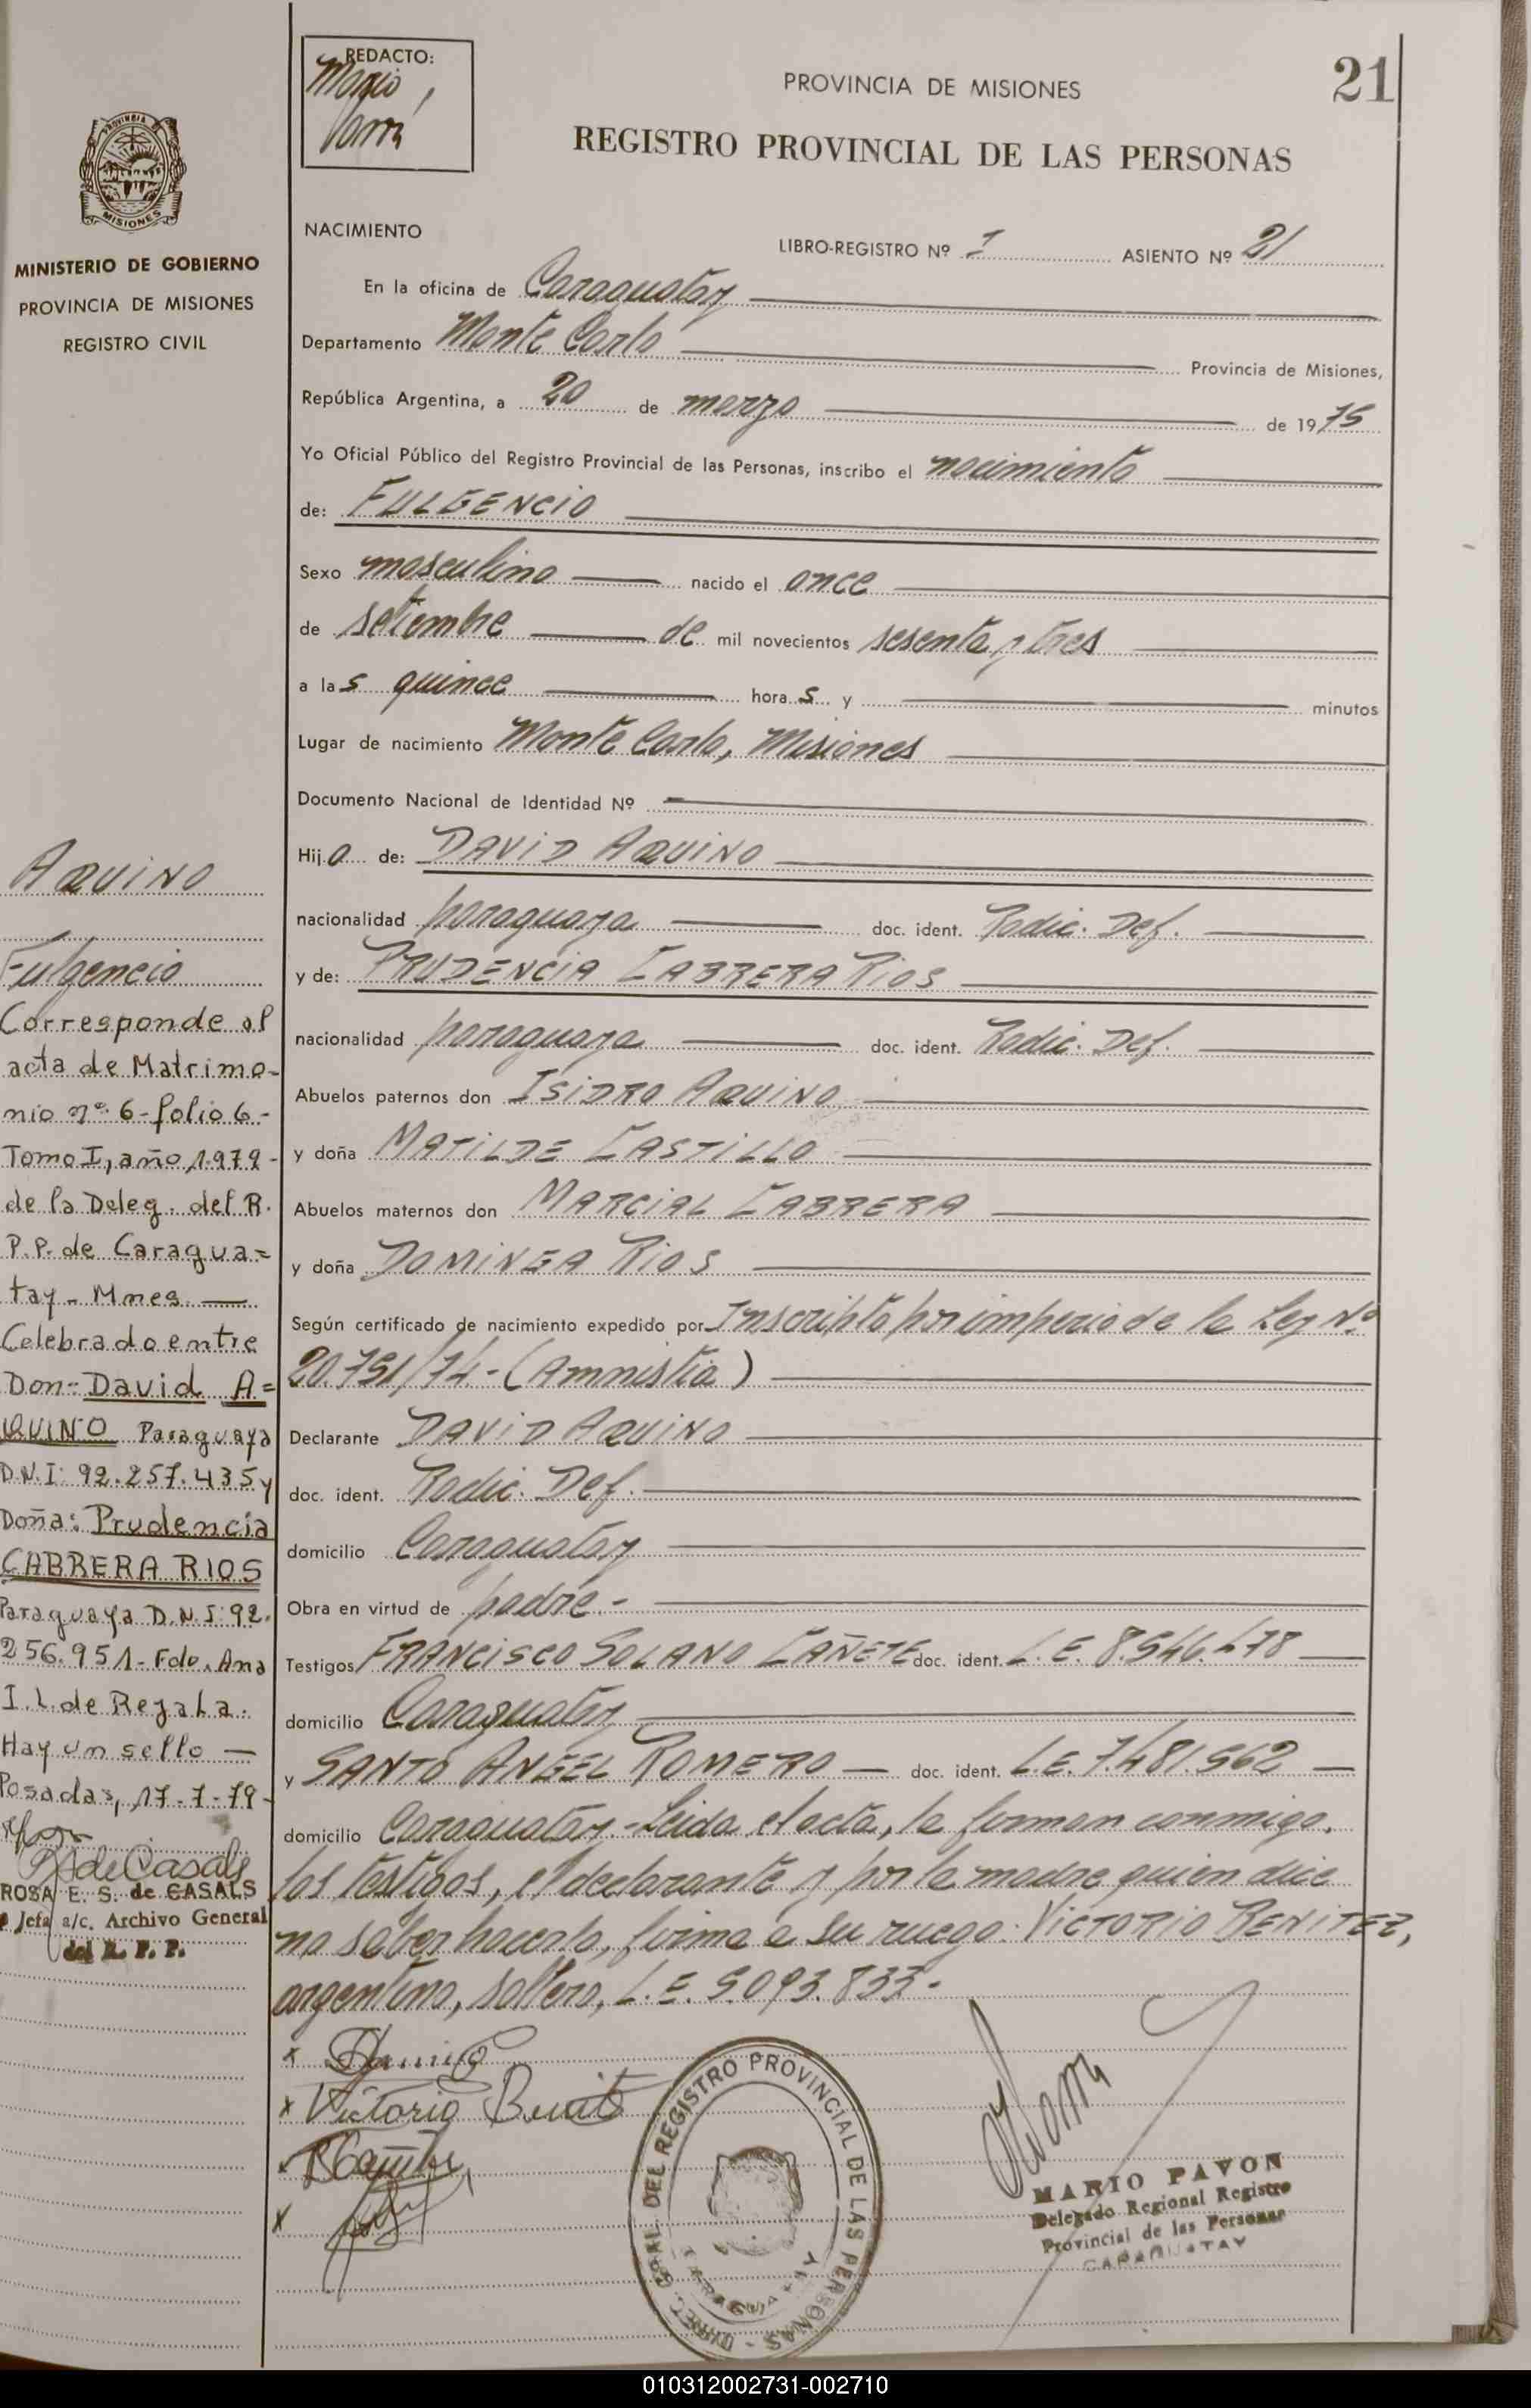 REDACTO:
Mario
21
PROVINCIA DE MISIONES
REGISTRO PROVINCIAL DE LAS PERSONAS
PROVINCIA DE
MISIONES
MINISTERIO DE GOBIERNO
PROVINCIA DE MISIONES
REGISTRO CIVIL
NACIMIENTO
LIBRO-REGISTRO Nº I ASIENTO Nº 21
En la oficina de Caraguatay
Departamento Monte Carlo Provincia de Misiones,
República Argentina, a 20 de marzo de 1975
Yo Oficial Público del Registro Provincial de las Personas, inscribo el nacimiento
de: FULGENCIO
Sexo masculino nacido el once
de setiembre de mil novecientos sesenta y tres
a las quince horas y minutos
Lugar de nacimiento Monte Carlo, Misiones
Documento Nacional de Identidad Nº
Hijo de: DAVID AQUINO
nacionalidad paraguaya doc. ident. Radic. Def.
y de: PRUDENCIA CABRERA RIOS
nacionalidad paraguaya doc. ident. Radic. Def.
Abuelos paternos don ISIDRO AQUINO
y doña MATILDE CASTILLO
Abuelos maternos don MARCIAL CABRERA
y doña DOMINGA RIOS
Según certificado de nacimiento expedido por Inscripto por imperio de la Ley Nº
20.751/74.- (Amnistia)
Declarante DAVID AQUINO
doc. ident. Radic. Def.
domicilio Caraguatay
Obra en virtud de padre.-
Testigos FRANCISCO SOLANO CAÑETE doc. ident. L.E. 8.546.478
domicilio Caraguatay
y SANTO ANGEL ROMERO doc. ident. L.E. 7.481.562
domicilio Caraguatay.- Leida el acta, la firman conmigo,
los testigos, el declarante y por la madre quien dice
no saber hacerlo, firma a su ruego: VICTORIO BENITEZ,
argentino, soltero, L.E. 5.093.833.-
AQUINO
Fulgencio
Corresponde al
acta de Matrimo-
nio nº 6-folio 6.-
Tomo I, año 1.979-
de la Deleg. del R.
P.P. de Caragua=
tay- Mnes
Celebrado entre
Don- David A=
QUINO Paraguaya
D.N.I: 92.257.435 y
Doña: Prudencia
CABRERA RIOS
Paraguaya D.N.I: 92.
256.951- Fdo. Ana
I. L. de Regala.
Hay un sello
Posadas, 17-7-79-
R de Casals
ROSA E. S. de CASALS
Jefa a/c. Archivo General
del R. P. P.
x
x Victorio Benit
x
DIREC. GRAL. DEL REGISTRO PROVINCIAL DE LAS PERSONAS -
CARAGUATAY
MARIO PAVON
Delegado Regional Registro
Provincial de las Personas
CARAGUATAY
010312002731-002710